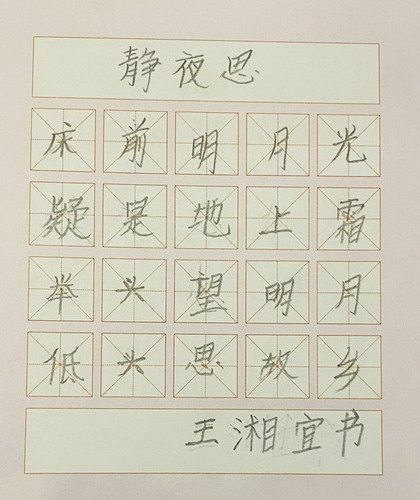 静夜思
床前明月光
疑是地上霜
举头望明月
低头思故乡
王湘宜书